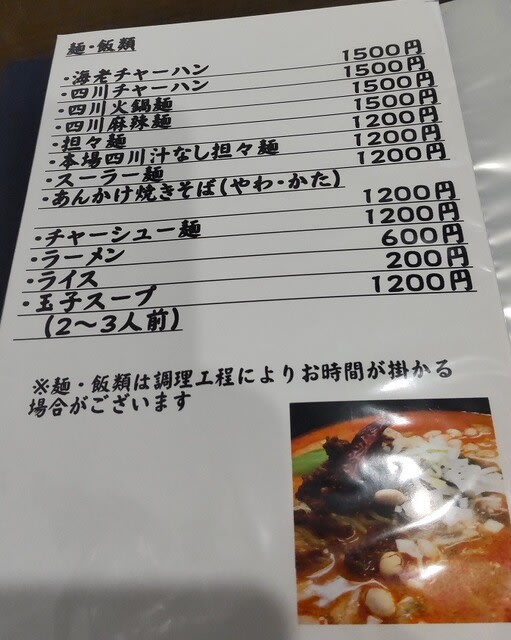 麺・飯類
・海老チャーハン 1500円
・四川チャーハン 1500円
・四川火鍋麺 1500円
・四川麻辣麺 1500円
・担々麺 1200円
・本場四川汁なし担々麺 1200円
・スーラー麺 1200円
・あんかけ焼きそば(やわ・かた)
1200円
・チャーシュー麺 1200円
・ラーメン 600円
・ライス 200円
・玉子スープ 1200円
(2〜3人前)
※麺・飯類は調理工程によりお時間が掛かる
場合がございます